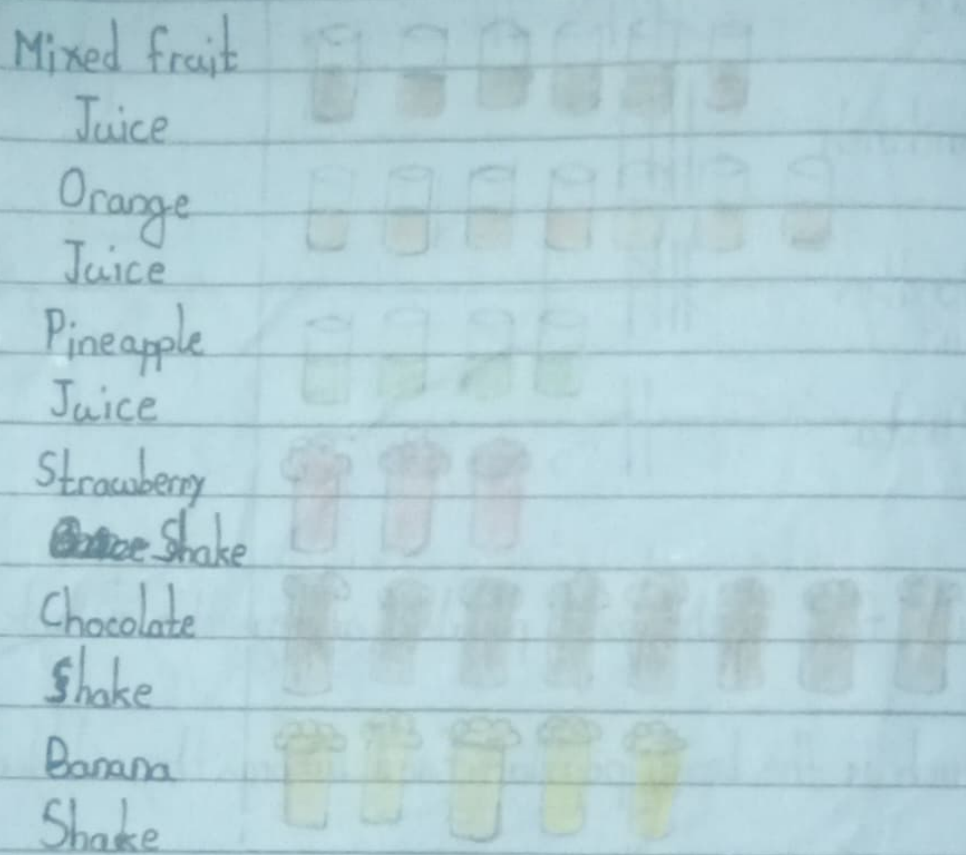 Mixed fruit
Juice
Orange
Juice
Pineapple
Juice
Strawberry
Shake
Chocolate
Shake
Banana
Shake